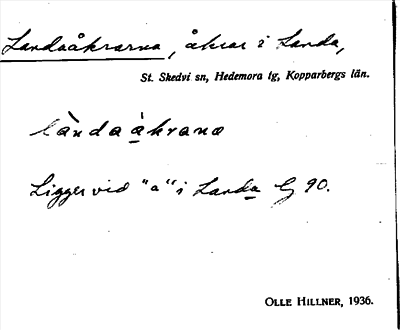 Landaåkrarna, åkrar i Landa,
St. Skedvi sn, Hedemora tg, Kopparbergs län.
làndaåkrana
Ligger vid "a" i Landa G 90.
OLLE HILLNER, 1936.